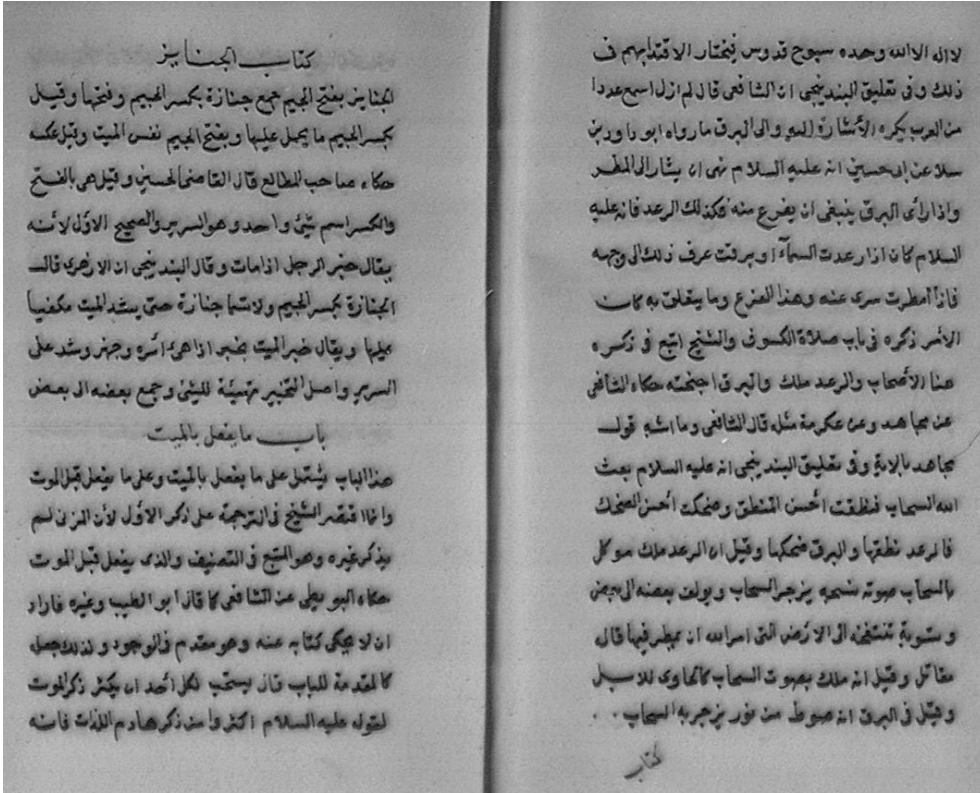 لااله الاالله وحده سبوح قدوس فيختار الاقتدابهم في
ذلك وفى تعليق البندنيجى ان الشافعى قال لم ازل اسمع عددا
من العرب يكره الأشارة اليه والى البرق مارواه ابو داود بن
سلا عن ابى حسين انه عليه السلام نهى ان يشار الى المطر
واذا رأى البرق ينبغى ان يفزع منه فكذلك الرعد فانه عليه
السلام كان اذا رعدت السمآء او برقت عرف ذلك الى وجهه
فاذا أمطرت سرى عنه وهذا الفرع وما يتعلق به كان
الأمر ذكره فى باب صلاة الكسوف والشيخ اتبع فى ذكره
هنا الأصحاب والرعد ملك والبرق اجنحته حكاه الشافعى
عن مجاهد وعن عكرمة مثله قال الشافعى وما اشبه قول
مجاهد بالاية وفى تعليق البندنيجى انه عليه السلام بعث
الله السحاب فنطقت أحسن المنطق وضحكت أحسن الضحك
فالرعد نطقها والبرق ضحكها وقيل ان الرعد ملك موكل
بالسحاب صوته تسبيحه يزجر السحاب ويولف بعضه الى بعض
الى الأرض التى امر الله ان يمطر فيها قاله
مقاتل وقيل انه ملك يصوت السحاب كالحادى للابل
وقيل فى البرق انه صوط من نور يزجر به السحاب . .
كتاب
كتاب الجنايز
الجنايز بفتح الجيم جمع جنازة بكسر الجيم وفتحها وقيل
بكسر الجيم ما يحمل عليها وبفتح الجيم نفس الميت وقيل عكسه
حكاه صاحب المطالع قال القاضى الحسين وقيل هى بالفتح
والكسر اسم شئ واحد وهو السرير والصحيح الاول لأنه
يقال جنز الرجل اذا مات وقال البندنيجى ان الازهرى قال
الجنازة بكسر الجيم ولا تسما جنازة حتى يشد الميت مكفيا
عليها ويقال جنز الميت بخبر اذا هئ أمره وجهز وشد على
السرير واصل التجنيز تهيئة للشئ وجمع بعضه الى بعض
باب ما يفعل بالميت
هذا الباب يشتمل على ما يفعل بالميت وعلى ما يفعل قبل الموت
وانما اقتصر الشيخ فى الترجمة على ذكر الاول لأن المزنى لم
يذكر غيره وهو المتبع فى التصنيف والذى يفعل قبل الموت
حكاه البويطى عن الشافعى كما قاله ابو الطيب وغيره فاراد
ان لا يخلى كتابه عنه وهو مقدم فى الوجود ولذلك جعله
كالمقدمة للباب قال يستحب لكل أحد ان يكثر ذكر الموت
لقوله عليه السلام اكثروا من ذكر هادم اللذات فانه